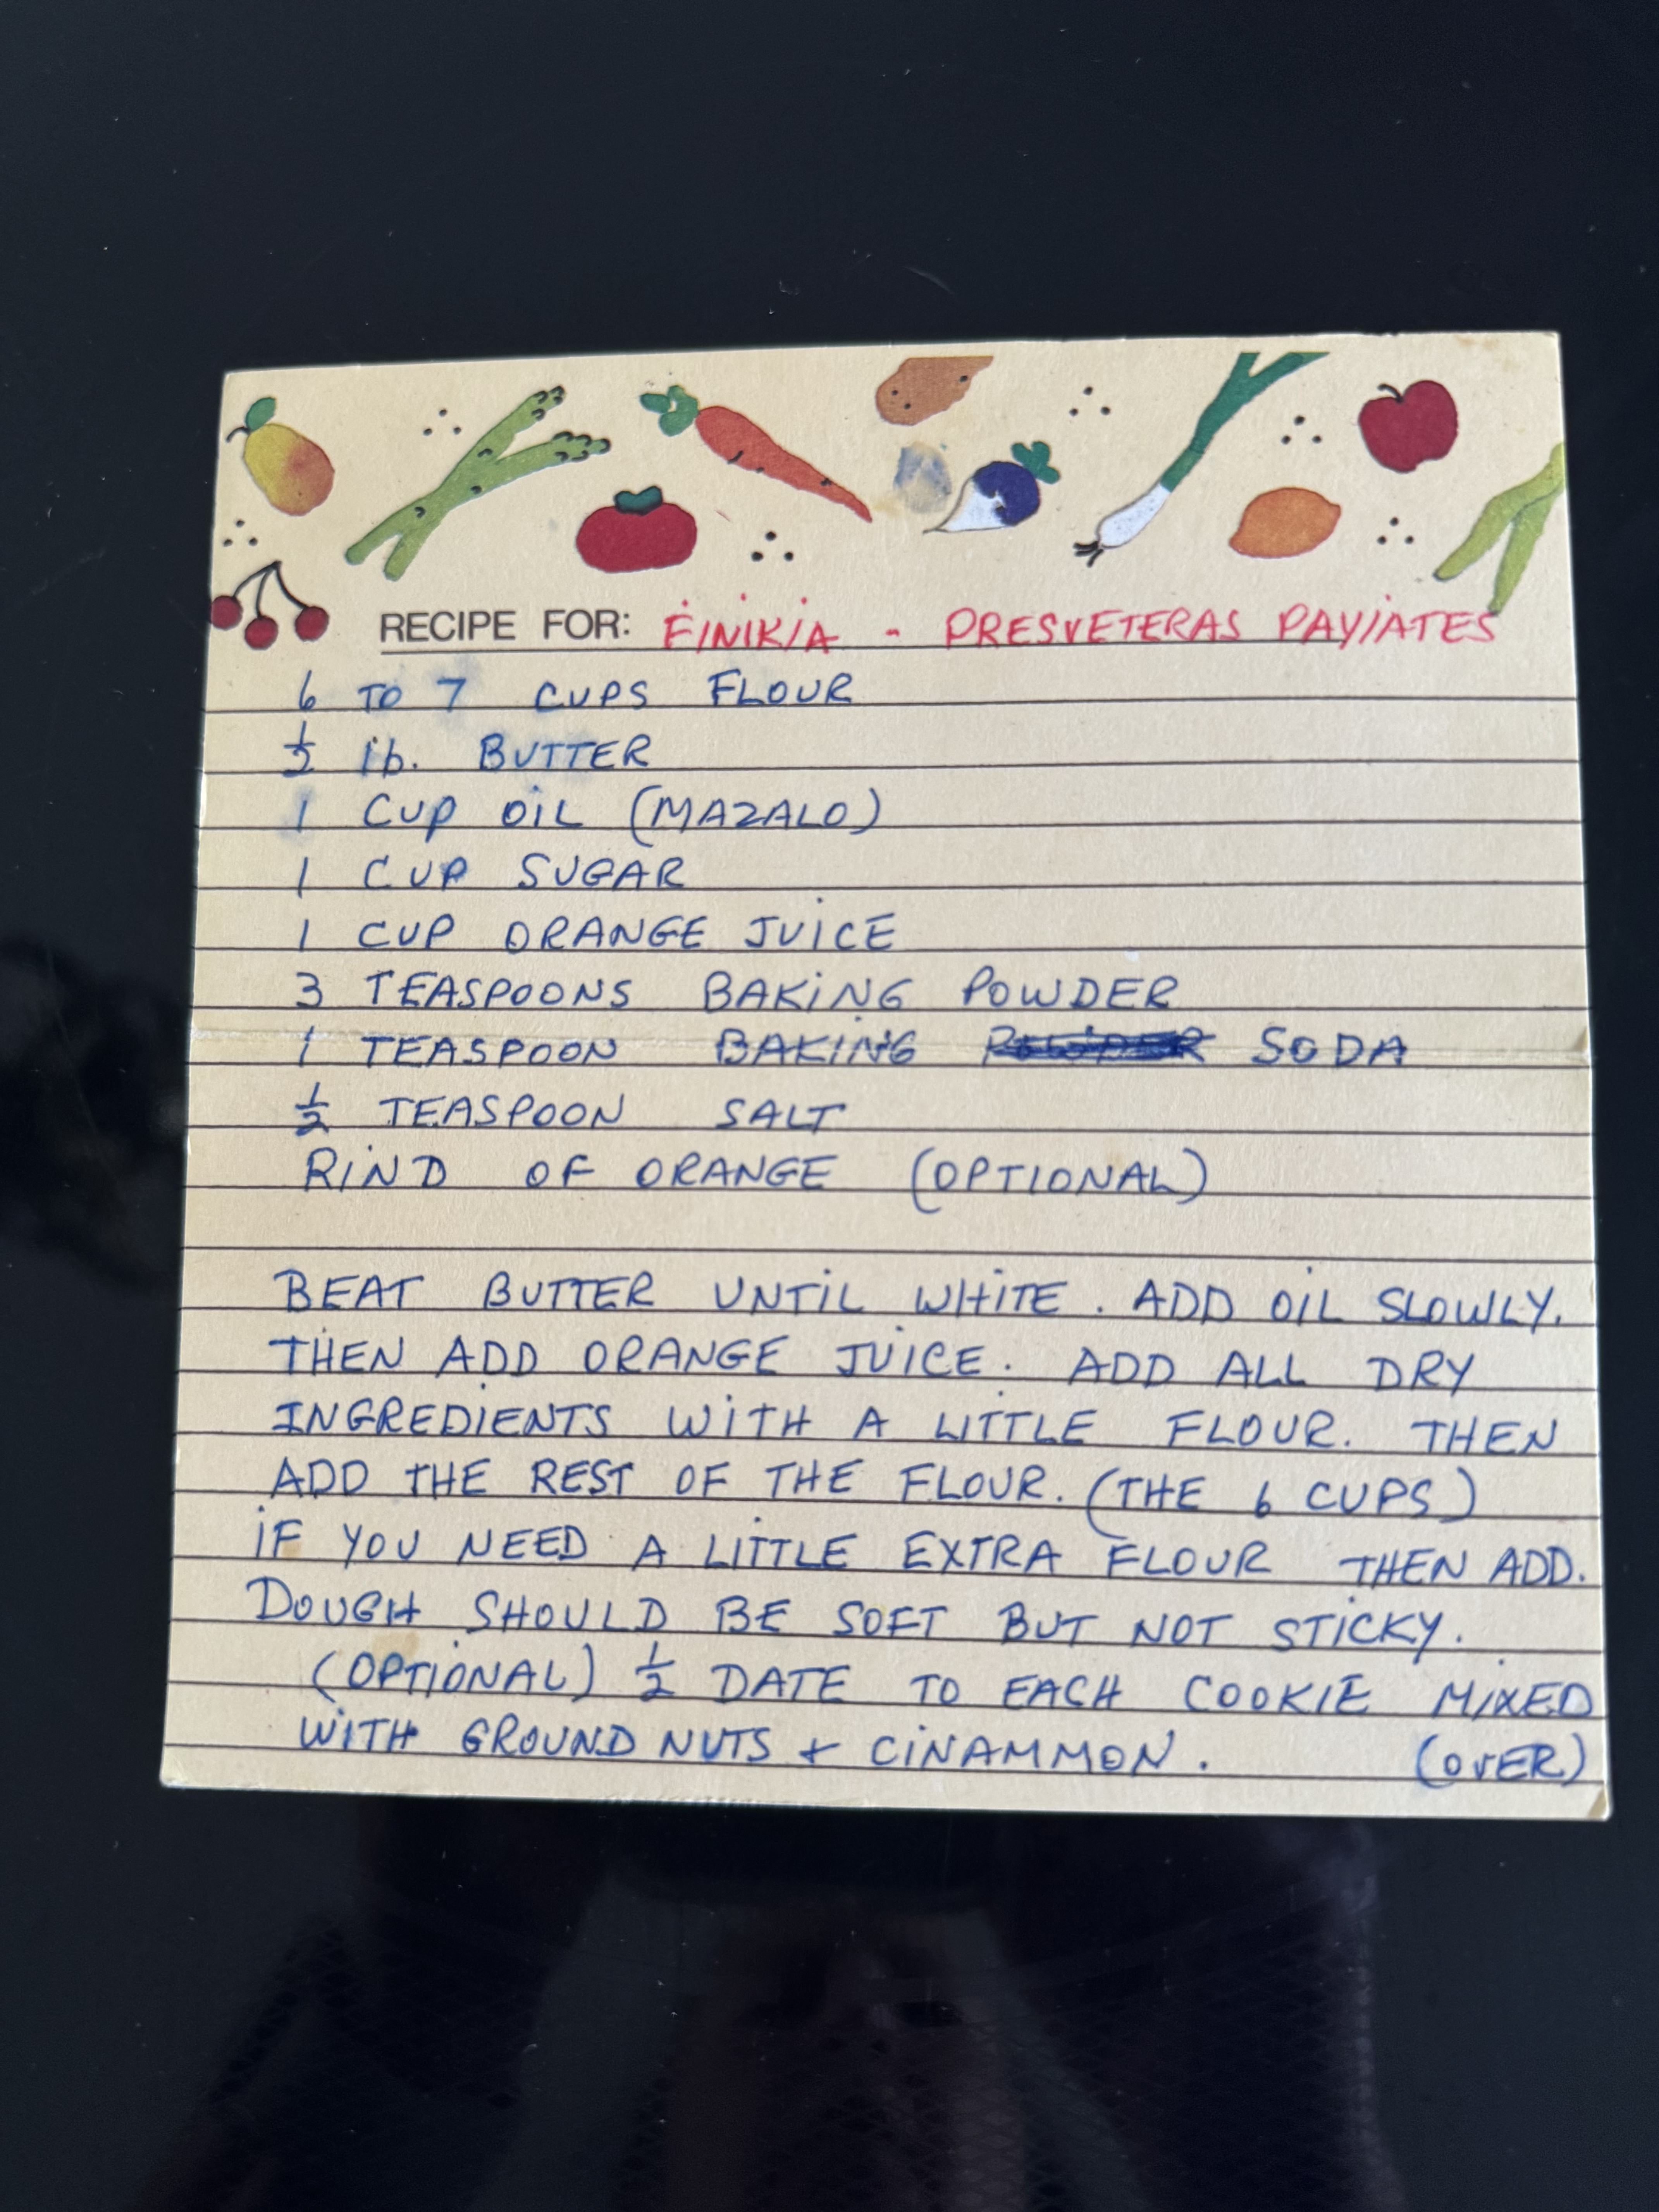 RECIPE FOR: FINIKIA - PRESVETERAS PAYIATES
6 TO 7 CUPS FLOUR
1/2 lb. BUTTER
1 CUP OIL (MAZALO)
1 CUP SUGAR
1 CUP ORANGE JUICE
3 TEASPOONS BAKING POWDER
1 TEASPOON BAKING POWDER SODA
1/2 TEASPOON SALT
RIND OF ORANGE (OPTIONAL)
BEAT BUTTER UNTIL WHITE. ADD OIL SLOWLY.
THEN ADD ORANGE JUICE. ADD ALL DRY
INGREDIENTS WITH A LITTLE FLOUR. THEN
ADD THE REST OF THE FLOUR. (THE 6 CUPS)
IF YOU NEED A LITTLE EXTRA FLOUR THEN ADD.
DOUGH SHOULD BE SOFT BUT NOT STICKY.
(OPTIONAL) 1/2 DATE TO EACH COOKIE MIXED
WITH GROUND NUTS + CINAMMON. (OVER)